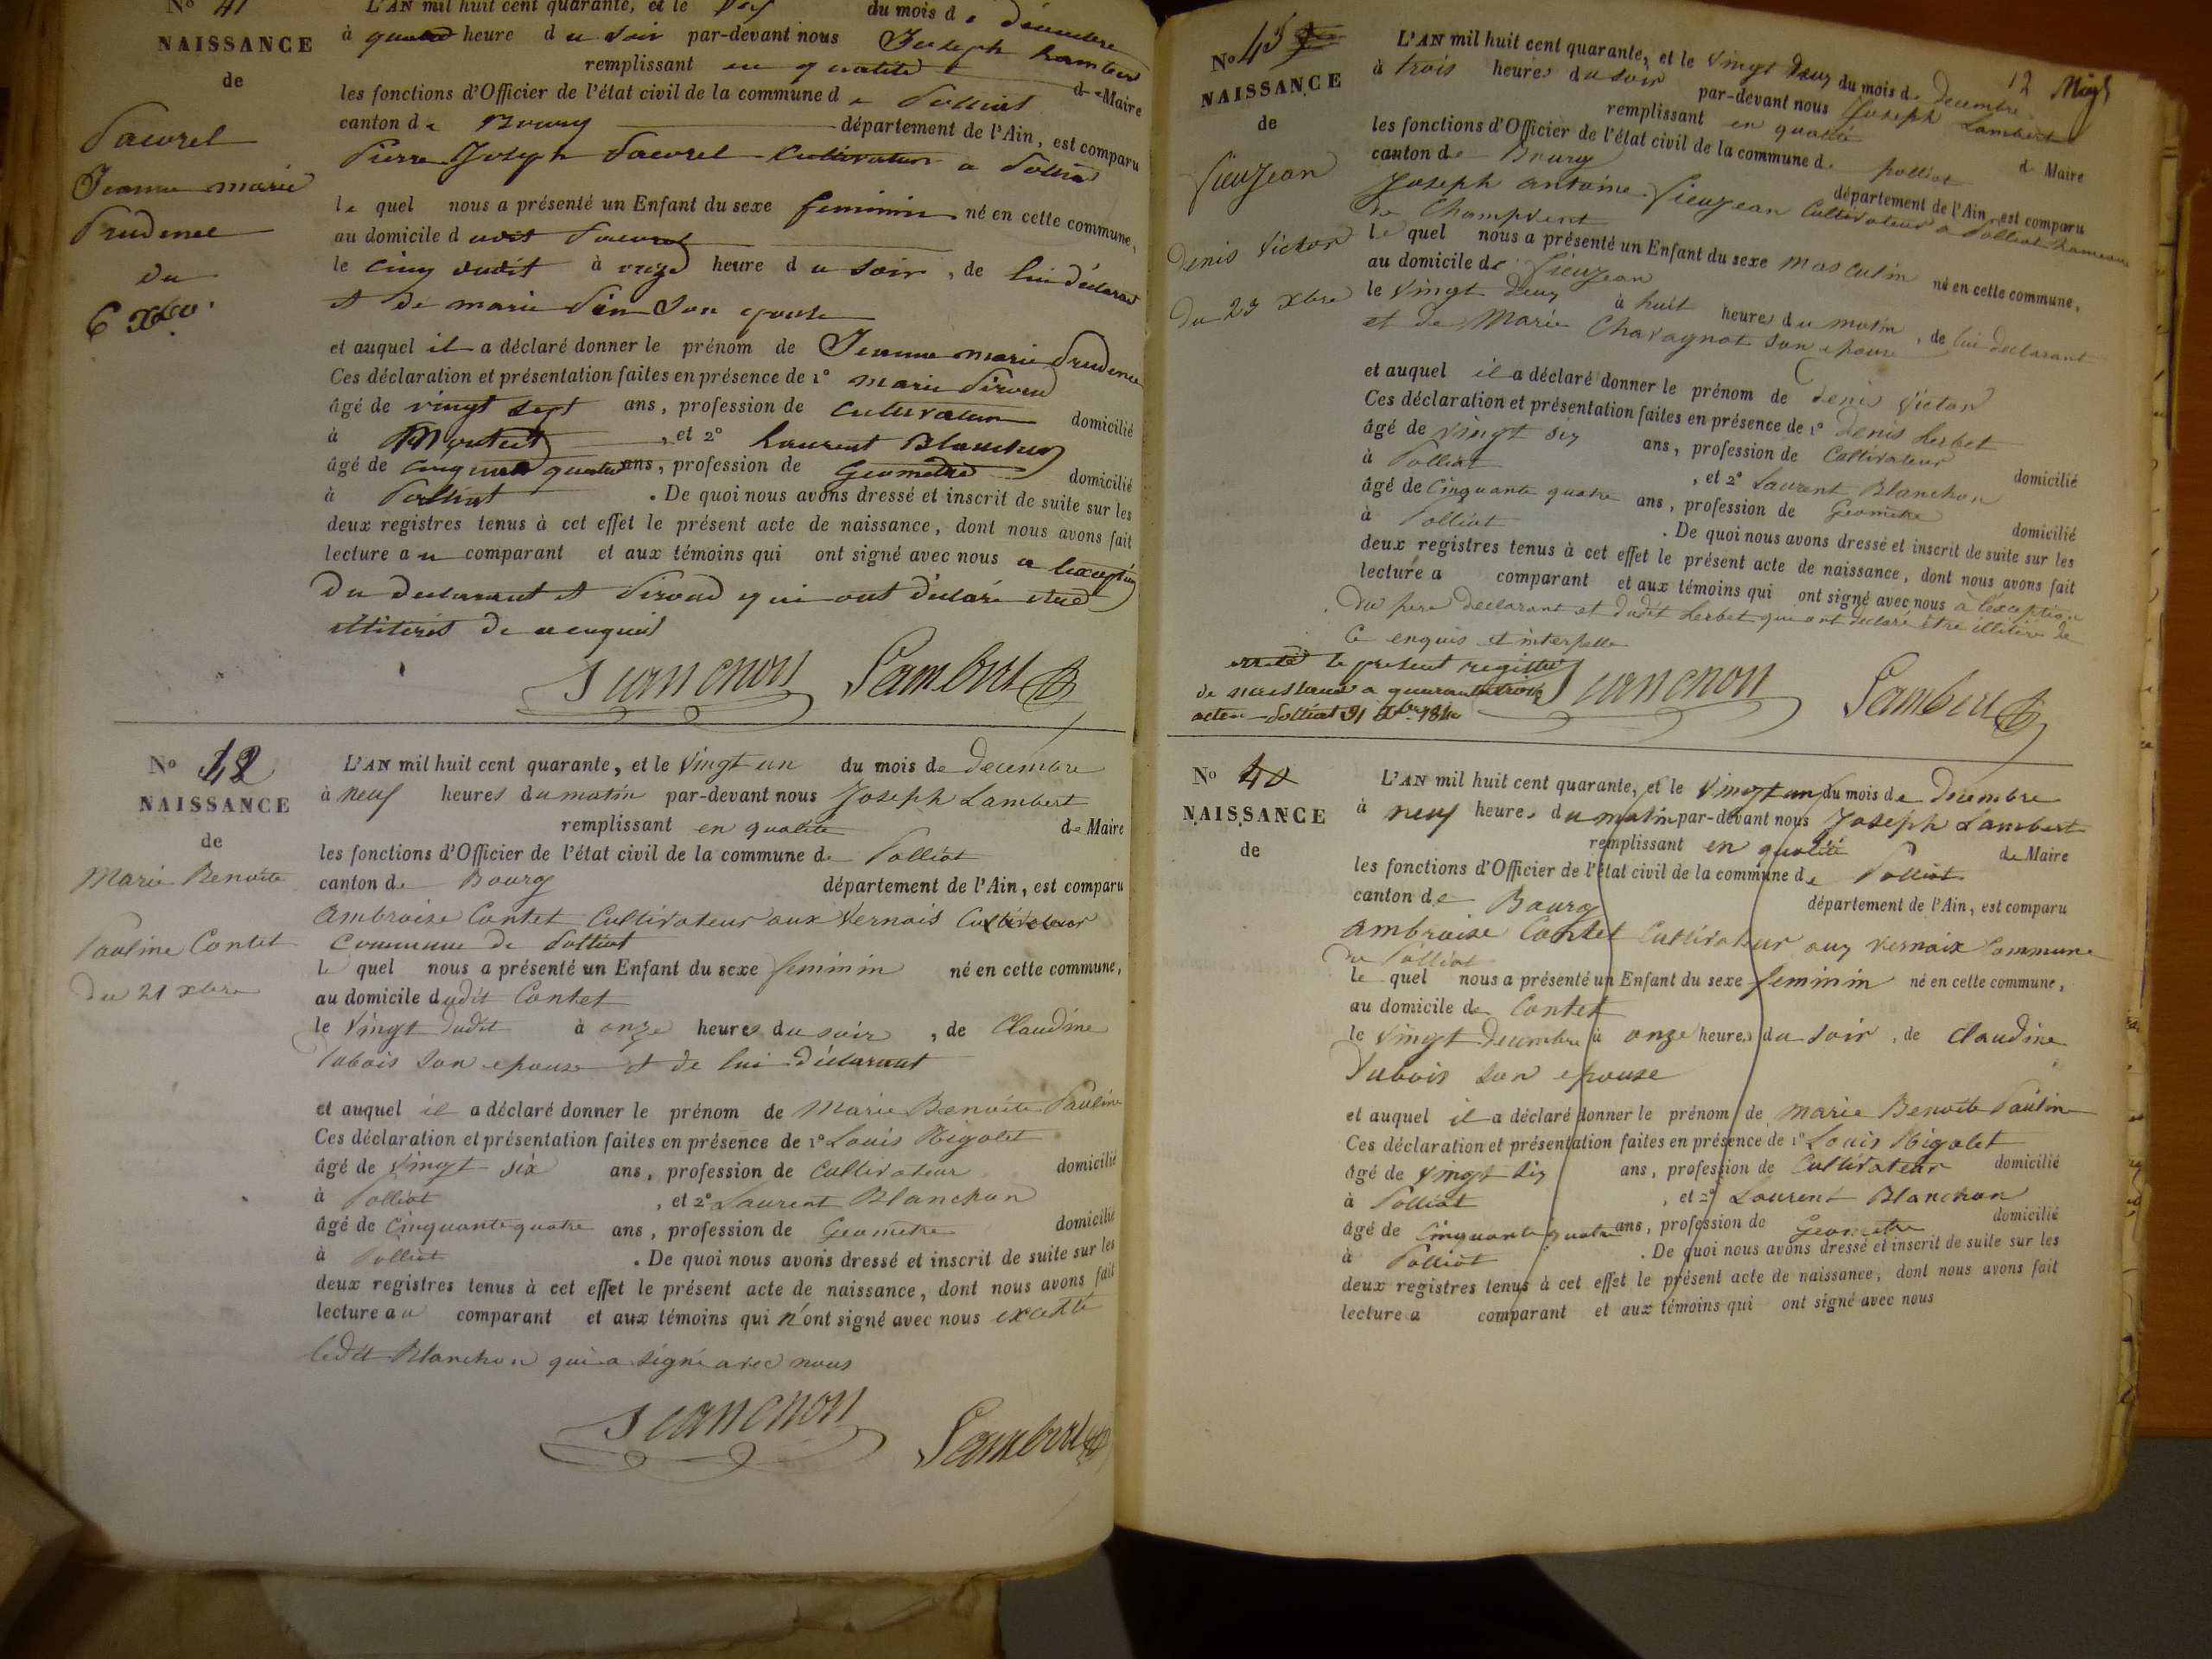 No 41
NAISSANCE
de
Jeanne marie
Prudence
du
6 Xbre
L'AN mil huit cent quarante, et le six du mois de décembre
à quatre heure du soir par-devant nous Joseph Lambert
remplissant en qualité de Maire
les fonctions d'Officier de l'état civil de la commune de Polliat
canton de Bourg département de l'Ain, est comparu
Pierre Joseph cultivateur a Polliat
le quel nous a présenté un Enfant du sexe feminin né en cette commune,
au domicile dudit
le cinq dudit à onze heure du soir, de lui déclarant
et de marie son epouse
et auquel il a déclaré donner le prénom de Jeanne marie Prudence
Ces déclaration et présentation faites en présence de 1° marie
âgé de vingt sept ans, profession de cultivateur domicilié
à , et 2° Laurent Blanchon
âgé de cinquante quatre ans, profession de Geometre domicilié
à Polliat . De quoi nous avons dressé et inscrit de suite sur les
deux registres tenus à cet effet le présent acte de naissance, dont nous avons fait
lecture au comparant et aux témoins qui ont signé avec nous a lexception
du declarant et qui ont déclaré être
illitérés de ce enquis
Blanchon Lambert
No 42
NAISSANCE
de
Marie Benoite
Pauline Contet
du 21 xbre
L'AN mil huit cent quarante, et le vingt un du mois de decembre
à neuf heures du matin par-devant nous Joseph Lambert
remplissant en qualité de Maire
les fonctions d'Officier de l'état civil de la commune de Polliat
canton de Bourg département de l'Ain, est comparu
ambroise Contet Cultivateur aux Vernais Cultivateur
commune de Polliat
le quel nous a présenté un Enfant du sexe feminin né en cette commune,
au domicile dudit Contet
le vingt dudit à onze heures du soir, de Claudine
Dubois son epouse et de lui déclarant
et auquel il a déclaré donner le prénom de Marie Benoite Pauline
Ces déclaration et présentation faites en présence de 1° Louis Rigolet
âgé de vingt six ans, profession de cultivateur domicilié
à Polliat , et 2° Laurent Blanchon
âgé de cinquante quatre ans, profession de Geometre domicilié
à Polliat . De quoi nous avons dressé et inscrit de suite sur les
deux registres tenus à cet effet le présent acte de naissance, dont nous avons fait
lecture au comparant et aux témoins qui n'ont signé avec nous excepté
ledit Blanchon qui a signé avec nous
Blanchon Lambert
12
No 43
NAISSANCE
de
Vieujean
Denis Victor
du 23 xbre
L'AN mil huit cent quarante, et le vingt deux du mois de decembre
à trois heures du soir par-devant nous Joseph Lambert
remplissant en qualité de Maire
les fonctions d'Officier de l'état civil de la commune de Polliat
canton de Bourg département de l'Ain, est comparu
Joseph antoine Vieujean Cultivateur a Polliat hameau
de Champvent
le quel nous a présenté un Enfant du sexe masculin né en cette commune,
au domicile de Vieujean
le vingt deux à huit heures du matin, de lui declarant
et de Marie Charagnat son epouse
et auquel il a déclaré donner le prénom de denis Victor
Ces déclaration et présentation faites en présence de 1° denis Herbet
âgé de vingt six ans, profession de Cultivateur domicilié
à Polliat , et 2° Laurent Blanchon
âgé de cinquante quatre ans, profession de Geometre domicilié
à Polliat . De quoi nous avons dressé et inscrit de suite sur les
deux registres tenus à cet effet le présent acte de naissance, dont nous avons fait
lecture a comparant et aux témoins qui ont signé avec nous à l'exception
du pere declarant et dudit Herbet qui ont declaré être illitéré de
ce enquis et interpelle
arreté le present registre
de naissance a quarante trois
actes Polliat 31 Xbre 1840
Blanchon Lambert
No 40
NAISSANCE
de
L'AN mil huit cent quarante, et le vingt un du mois de decembre
à neuf heures du matin par-devant nous Joseph Lambert
remplissant en qualité de Maire
les fonctions d'Officier de l'état civil de la commune de Polliat
canton de Bourg département de l'Ain, est comparu
ambroise Contet Cultivateur aux vernaix Commune
de Polliat
le quel nous a présenté un Enfant du sexe feminin né en cette commune,
au domicile de Contet
le vingt decembre à onze heures du soir, de Claudine
Dubois son epouse
et auquel il a déclaré donner le prénom de marie Benoite Pauline
Ces déclaration et présentation faites en présence de 1° Louis Rigolet
âgé de vingt six ans, profession de Cultivateur domicilié
à Polliat , et 2° Laurent Blanchon
âgé de cinquante quatre ans, profession de Geometre domicilié
à Polliat . De quoi nous avons dressé et inscrit de suite sur les
deux registres tenus à cet effet le présent acte de naissance, dont nous avons fait
lecture a comparant et aux témoins qui ont signé avec nous